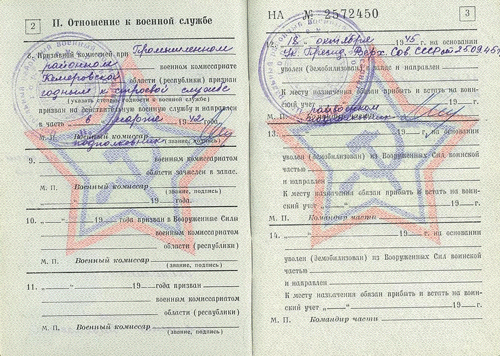 2
II. Отношение к военной службе
8. Призывной комиссией при Промышленном
районном военном комиссариате
Кемеровской области (республики) признан
годным к строевой службе
(указать степень годности к военной службе)
призван на действительную военную службу и направлен
в часть " " марте 1942 г.
М. П. Военный комиссар
подполковник
(звание, подпись)
9.
военным комиссариатом
области зачислен в запас.
М. П. Военный комиссар
(звание, подпись)
" " 19 года.
10. " " 19 года призван в Вооруженные Силы
военным комиссариатом
области (республики)
М. П. Военный комиссар
(звание, подпись)
11. " " 19 года призван
военным комиссариатом
области (республики)
М. П. Военный комиссар
(звание, подпись)
НА № 2572450
3
12. "18" октября 1945 г. на основании
Ук. Презид. Верх. Сов. СССР от 25.09.45 г.
уволен (демобилизован) в запас и направлен
К месту назначения обязан прибыть и встать на воинский
учет " " 19 г.
М. П.
13. " " 19 г. на основании
уволен (демобилизован) из Вооруженных Сил воинской
частью
и направлен
К месту назначения обязан прибыть и встать на воин-
ский учет " " 19 г.
М. П. Командир части
14. " " 19 г. на основании
уволен (демобилизован) из Вооруженных Сил воинской
частью
и направлен
К месту назначения обязан прибыть и встать на воин-
ский учет " " 19 г.
М. П. Командир части